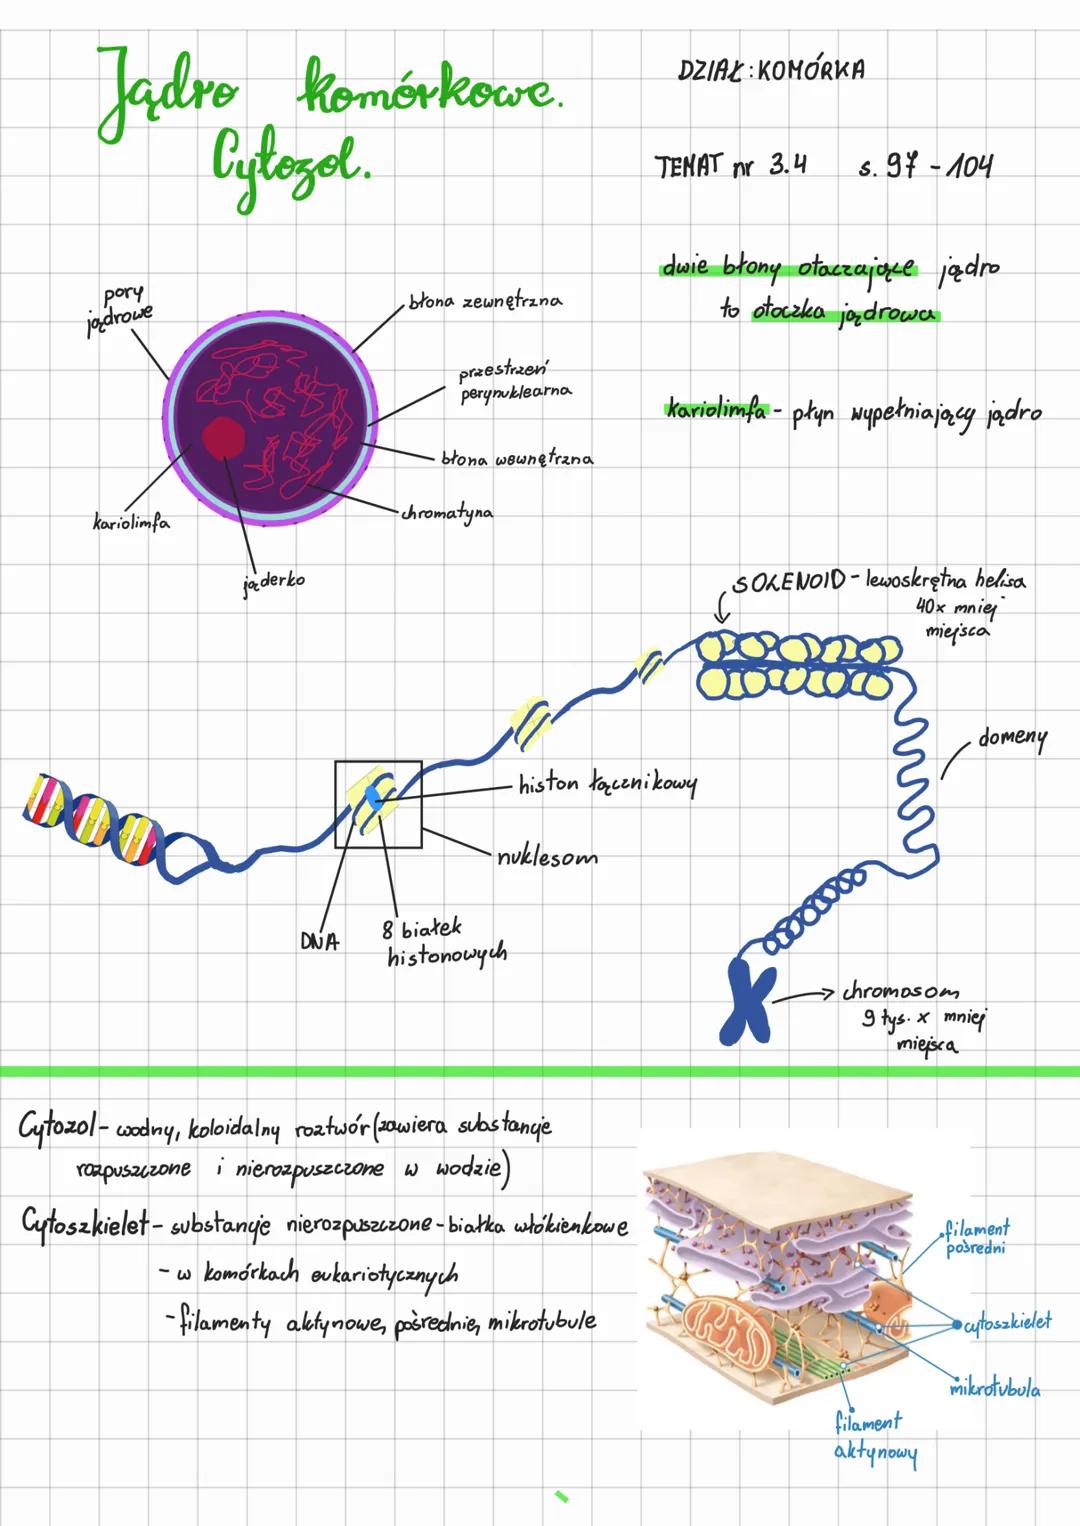 Jądro komórkowe.
Cytozol.
DZIAŁ: KOMÓRKA
TEMAT nr 3.4 s. 97 - 104
dwie błony otaczające jądro
to otoczka jądrowa
kariolimfa - płyn wypełniający jądro
pory
jądrowe
błona zewnętrzna
przestrzeń
perynuklearna
błona wewnętrzna
chromatyna
kariolimfa
jąderko
SOLENOID - lewoskrętna helisa
40x mniej
miejsca
domeny
histon łącznikowy
nuklesom
DNA
8 białek
histonowych
chromosom
9 tys. x mniej
miejsca
Cytozol - wodny, koloidalny roztwór (zawiera substancje
rozpuszczone i nierozpuszczone w wodzie)
Cytoszkielet - substancje nierozpuszczone - białka włókienkowe
- w komórkach eukariotycznych
- filamenty aktynowe, pośrednie, mikrotubule
filament
pośredni
cytoszkielet
mikrotubula
filament
aktynowy